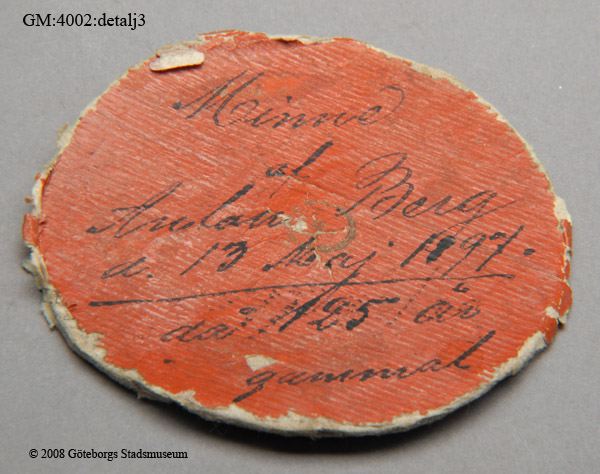 GM:4002:detalj3
Minne
af
Berg
d. 13 Maj 1897.
då 85 år
gammal
© 2008 Göteborgs Stadsmuseum